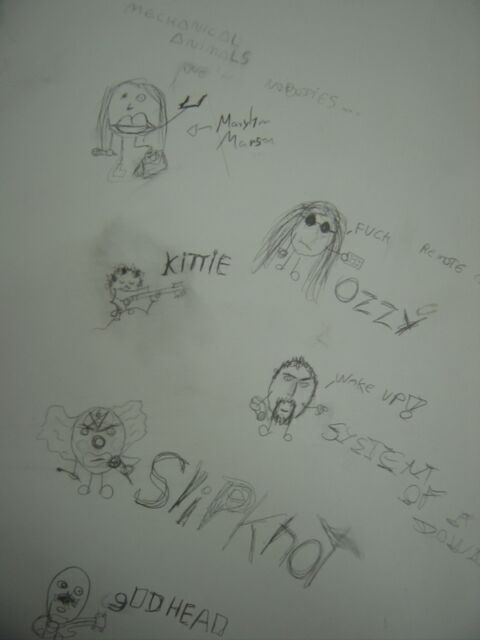 MECHANICAL
ANIMALS
NOBODIES...
Marylin
Manson
KITTIE
FUCK REMOTE
OZZY
WAKE UP!!
SYSTEM
OF A
DOWN
SLIPKnOT
gODHEAD